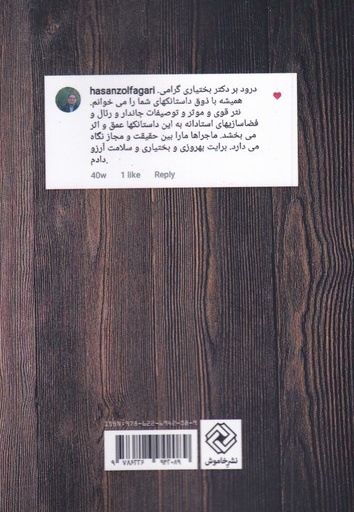 hasanzolfagari درود بر دکتر بختیاری گرامی.
همیشه با ذوق داستانکهای شما را می خوانم.
نثر قوی و موثر و توصیفات جاندار و رئال و
فضاسازیهای استادانه به این داستانکها عمق و اثر
می بخشد. ماجراها مارا بین حقیقت و مجاز نگاه
می دارد. برایت بهروزی و بختیاری و سلامت آرزو
دادم.
40w 1 like Reply
ISBN: 978-622-6942-08-9
9 786226 942089
نشر خاموش